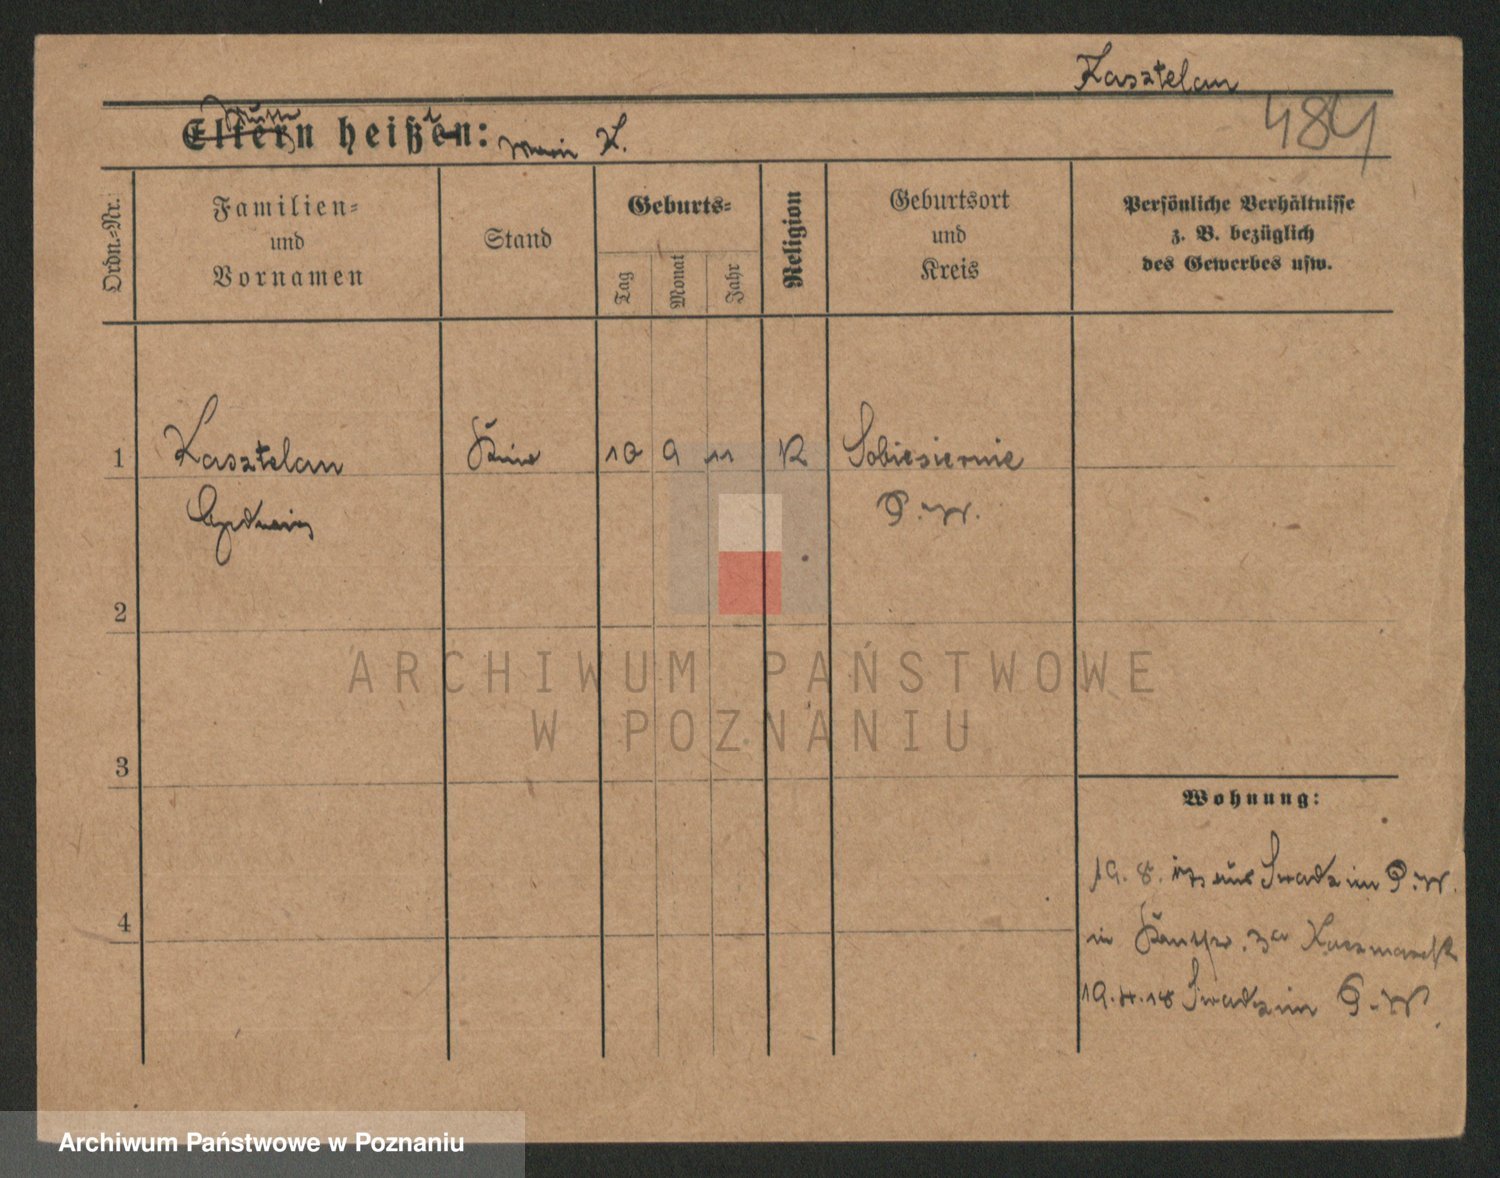 Kasztelan
484
Eltern heißen: K.
Ordn.-Nr.
Familien-
und
Vornamen
Stand
Geburts-
Tag
Monat
Jahr
Religion
Geburtsort
und
Kreis
Persönliche Verhältnisse
z. B. bezüglich
des Gewerbes usw.
1
Kasztelan
10 9 11
K
Sobiesiernie
P. W.
2
3
4
Wohnung:
19. 8. aus Swadzim P. W.
in
19. 4. 18 Swadzim P. W.
ARCHIWUM PAŃSTWOWE
W POZNANIU
Archiwum Państwowe w Poznaniu